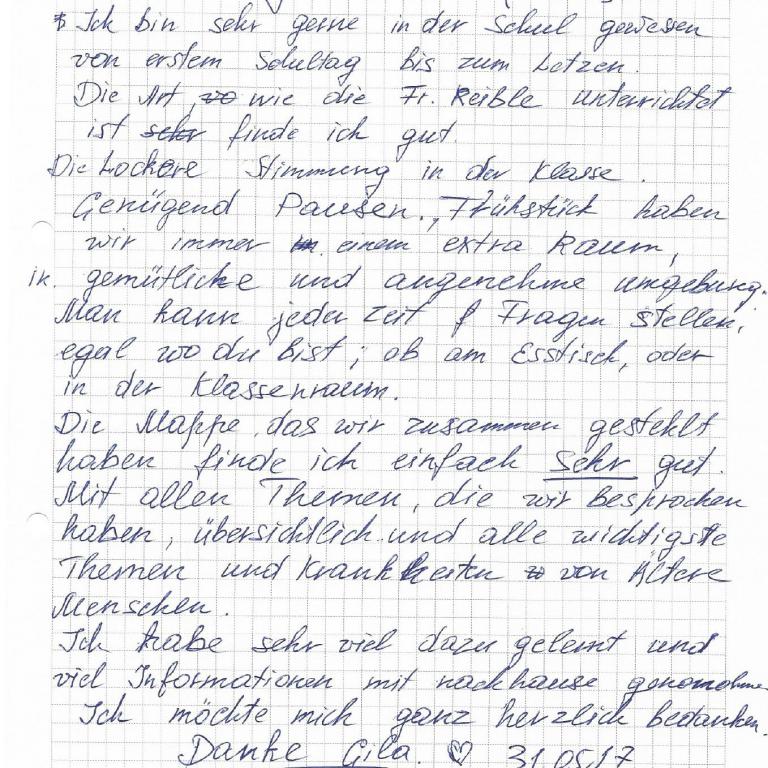 Ich bin sehr gerne in der Schul gewessen
von erstem Schultag bis zum Letzen.
Die Art, wie die Fr. Reible unterrichtet
ist finde ich gut.
Die Lockere Stimmung in der Klasse.
Genügend Pausen., Frühstück haben
wir immer einem extra Raum,
in. gemütliche und angenehme umgebung.
Man kann jeder Zeit Fragen stellen,
egal wo du bist; ob am Esstisch, oder
in der Klassenraum.
Die Mappe, das wir zusammen gestehlt
haben finde ich einfach sehr gut.
Mit allen Themen, die wir besprochen
haben, übersichtlich und alle wichtigste
Themen und Krankheiten von Ältere
Menschen.
Ich habe sehr viel dazu gelernt und
viel Informationen mit nachhause genommen
Ich möchte mich ganz herzlich bedanken.
Danke Gila. ♡ 31.05.17